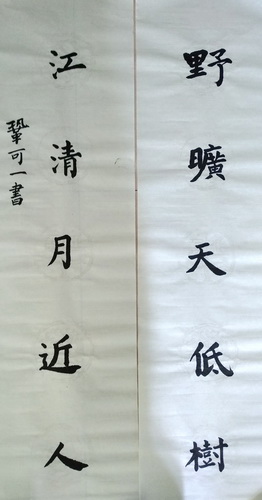 野曠天低樹
江清月近人
鞏可一書